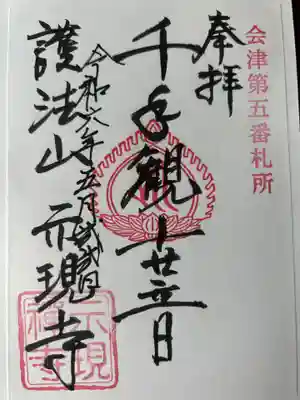 会津第五番札所
奉拝
千手観世音
令和六年五月
護法山 示現寺
示現禪寺